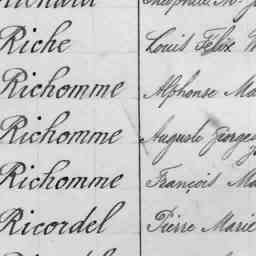 Riche Louis Félix
Richomme Alphonse Ma
Richomme Auguste Georges
Richomme François Ma
Ricordel Pierre Marie